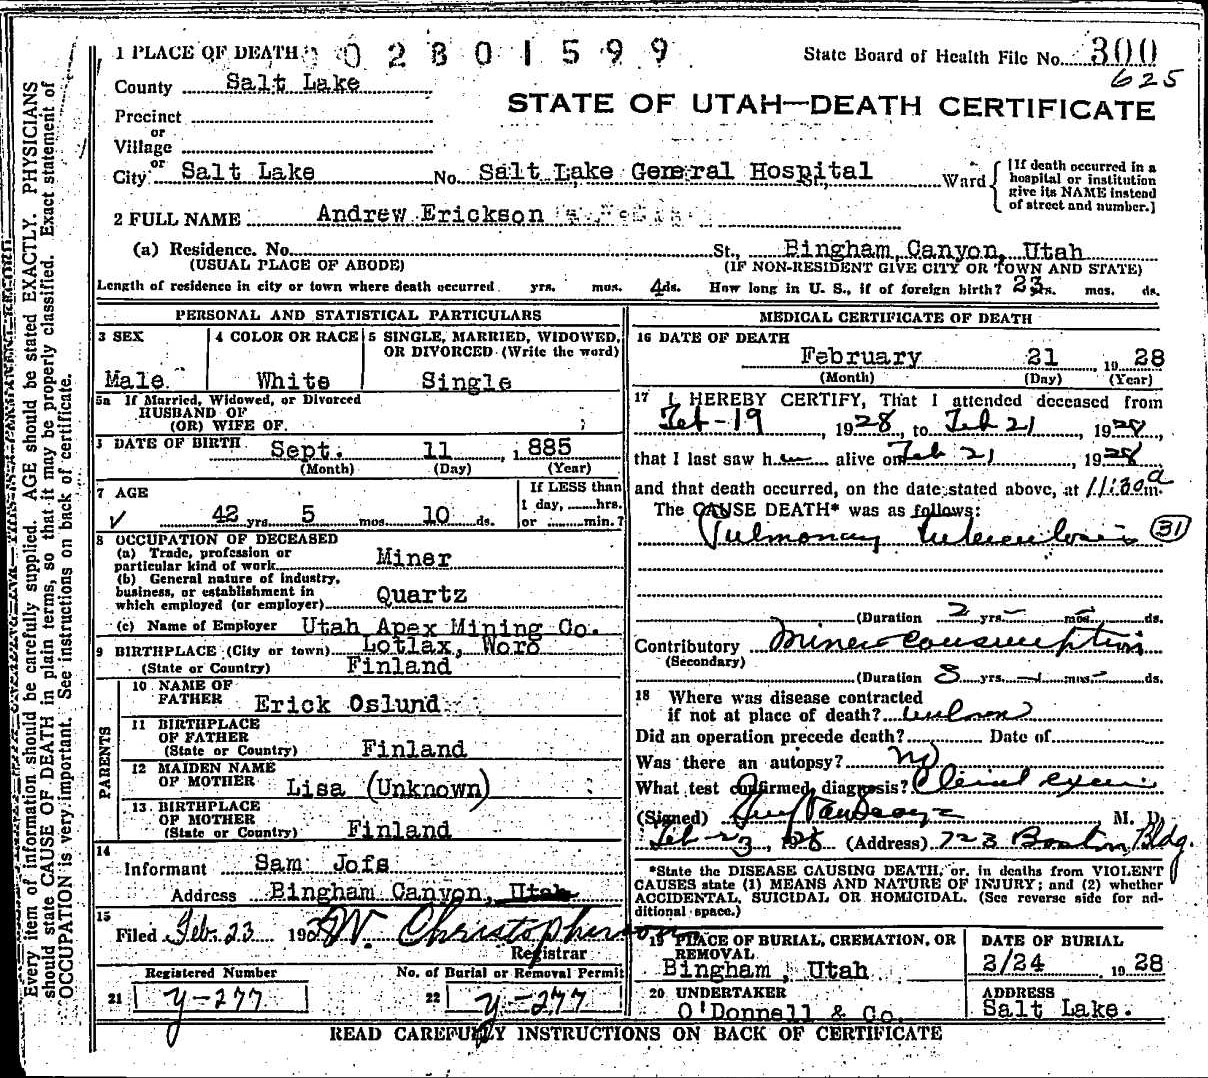 Every item of information should be carefully supplied. AGE should be stated EXACTLY. PHYSICIANS
should state CAUSE OF DEATH in plain terms, so that it may be properly classified. Exact statement of
OCCUPATION is very important. See instructions on back of certificate.
1 PLACE OF DEATH 02801599 State Board of Health File No. 300
625
County Salt Lake
STATE OF UTAH—DEATH CERTIFICATE
Precinct
or
Village
or
City Salt Lake No. Salt Lake General Hospital Ward
[If death occurred in a
hospital or institution
give its NAME instead
of street and number.]
2 FULL NAME Andrew Erickson
(a) Residence. No. St., Bingham Canyon, Utah
(USUAL PLACE OF ABODE) (IF NON-RESIDENT GIVE CITY OR TOWN AND STATE)
Length of residence in city or town where death occurred. yrs. mos. 4 ds. How long in U. S., if of foreign birth? 23 yrs. mos. ds.
PERSONAL AND STATISTICAL PARTICULARS
3 SEX
Male
4 COLOR OR RACE
White
5 SINGLE, MARRIED, WIDOWED,
OR DIVORCED (Write the word)
Single
5a If Married, Widowed, or Divorced
HUSBAND OF
(OR) WIFE OF
DATE OF BIRTH Sept. 11, 1885
(Month) (Day) (Year)
7 AGE
42 yrs. 5 mos. 10 ds.
If LESS than
1 day, hrs.
or min.?
8 OCCUPATION OF DECEASED
(a) Trade, profession or
particular kind of work Miner
(b) General nature of industry,
business, or establishment in
which employed (or employer) Quartz
(c) Name of Employer Utah Apex Mining Co.
9 BIRTHPLACE (City or town) Lotlax, Woro
(State or Country) Finland
PARENTS
10 NAME OF
FATHER Erick Oslund
11 BIRTHPLACE
OF FATHER
(State or Country) Finland
12 MAIDEN NAME
OF MOTHER Lisa (Unknown)
13 BIRTHPLACE
OF MOTHER
(State or Country) Finland
14
Informant Sam Jofs
Address Bingham Canyon, Utah
15
Filed Feb. 23 192 W. Christopherson
Registrar
Registered Number
21 y-277
No. of Burial or Removal Permit
22 y-277
MEDICAL CERTIFICATE OF DEATH
16 DATE OF DEATH
February 21, 1928
(Month) (Day) (Year)
17 I HEREBY CERTIFY, That I attended deceased from
Feb-19, 1928, to Feb 21, 1928,
that I last saw him alive on Feb 21, 1928
and that death occurred, on the date stated above, at 11:30 a m.
The CAUSE DEATH* was as follows:
Pulmonary tuberculosis 31
(Duration 2 yrs. - mos. - ds.
Contributory Miners consumption
(Secondary)
(Duration 8 yrs. - mos. - ds.
18 Where was disease contracted
if not at place of death? unknown
Did an operation precede death? Date of
Was there an autopsy? no
What test confirmed diagnosis? Clinical exam
(Signed) M. D.
Feb-23, 1928 (Address) 723 Boston Bldg.
*State the DISEASE CAUSING DEATH, or, in deaths from VIOLENT
CAUSES state (1) MEANS AND NATURE OF INJURY; and (2) whether
ACCIDENTAL, SUICIDAL OR HOMICIDAL. (See reverse side for ad-
ditional space.)
19 PLACE OF BURIAL, CREMATION, OR
REMOVAL
Bingham, Utah
DATE OF BURIAL
2/24, 1928
20 UNDERTAKER
O'Donnell & Co.
ADDRESS
Salt Lake.
READ CAREFULLY INSTRUCTIONS ON BACK OF CERTIFICATE